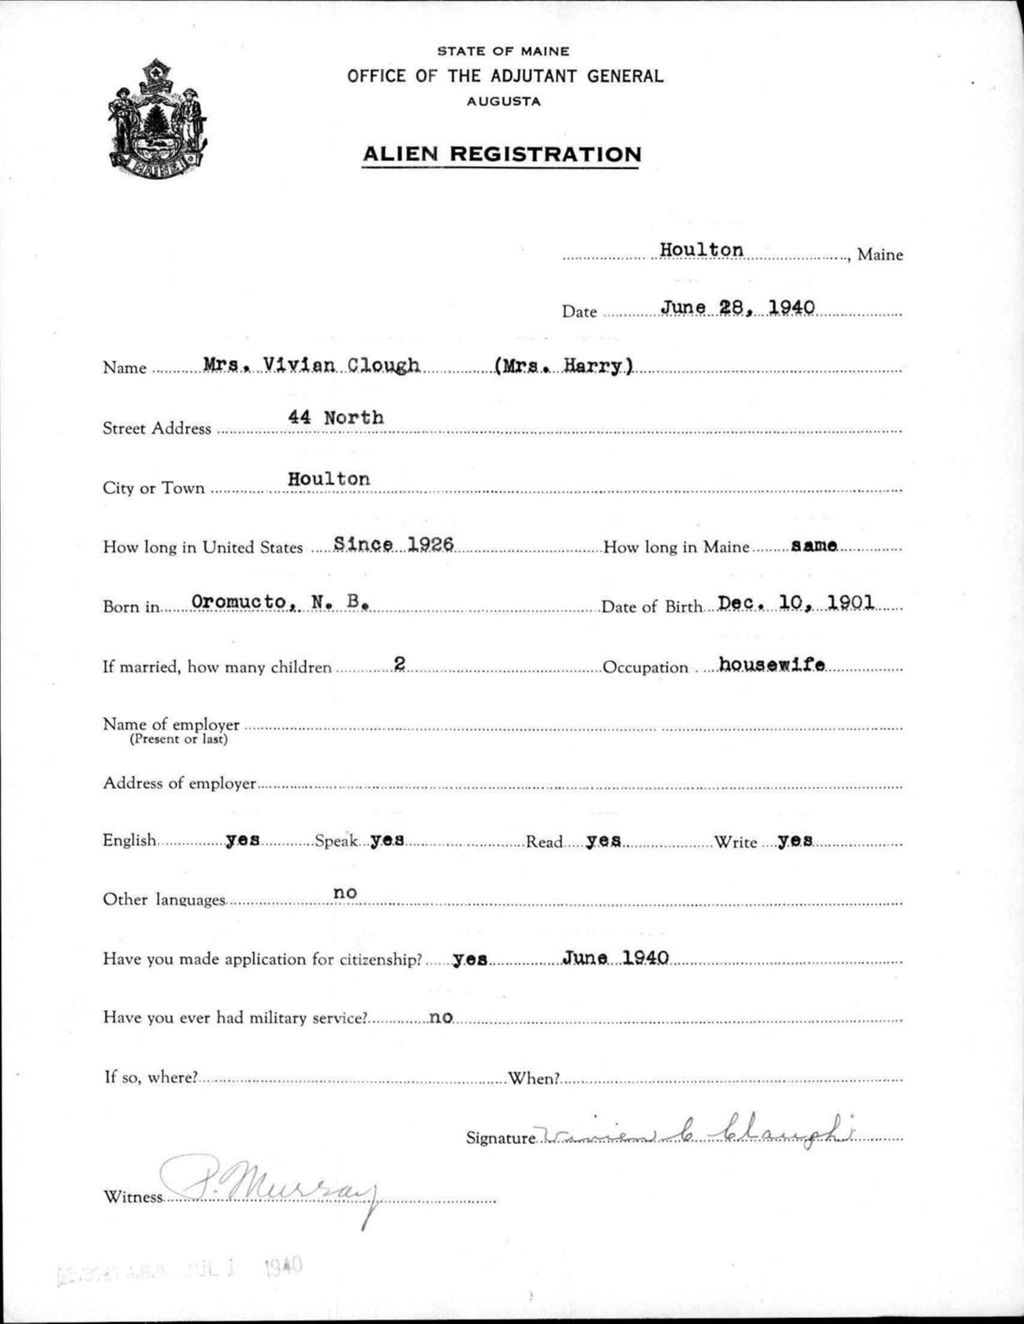 STATE OF MAINE
OFFICE OF THE ADJUTANT GENERAL
AUGUSTA
ALIEN REGISTRATION
MAINE
Houlton, Maine
Date June 28, 1940
Name Mrs. Vivian Clough (Mrs. Harry)
Street Address 44 North
City or Town Houlton
How long in United States Since 1926 How long in Maine same
Born in Oromucto, N. B. Date of Birth Dec. 10, 1901
If married, how many children 2 Occupation housewife
Name of employer
(Present or last)
Address of employer
English yes Speak yes Read yes Write yes
Other languages no
Have you made application for citizenship? yes June 1940
Have you ever had military service? no
If so, where? When?
Signature Vivien C Clough
Witness P. Murray
JUL 1 1940